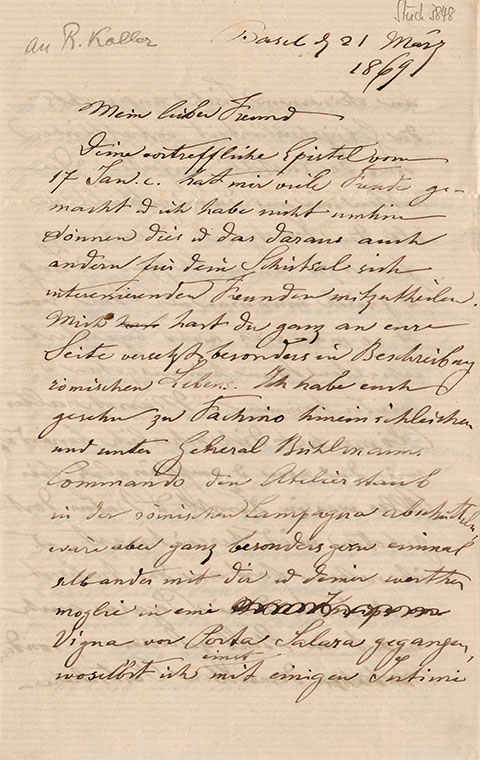 Stück 3848
an R. Koller
Basel d 21 März
1869
Mein lieber Freund
Deine vortreffliche Epistel vom
17 Jan. c. hat mir viele Freude ge-
macht & ich habe nicht umhin
können dies & das daraus auch
andern für dein Schicksal sich
interessirenden Freunden mitzutheilen.
Mich hast du ganz an eure
Seite versetzt, besonders in Beschreibung
römischen Lebens. Ich habe euch
gesehn zu Fachino hineinschleichen
und unter General Bühlmanns
Commando den Atelierstaub
in der römischen Campagna abschütteln,
wäre aber ganz besonders gern einmal
selbander mit dir & deiner werthen
moglie in eine
Vigna vor Porta Salara gegangen,
woselbst ich einst mit einigen Intimi